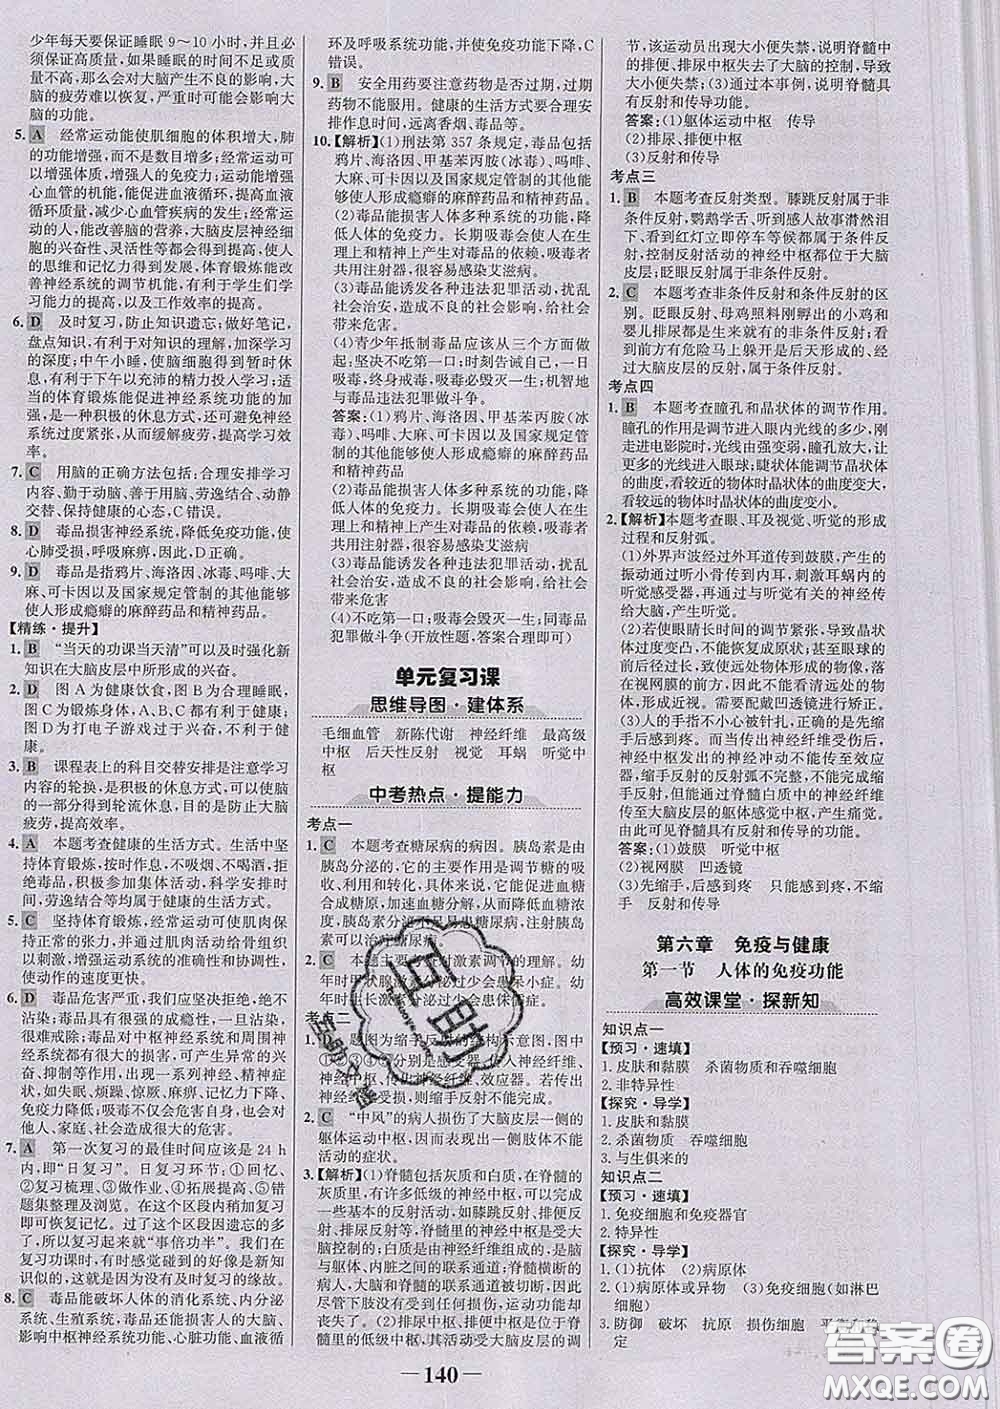 少年每天要保证睡眠 9～10 小时,并且必
须保证高质量,如果睡眠的时间不足或
者质量不高,对大脑产生不良的影响,大
脑的疲劳难以恢复,严重时可能会影响大
脑的功能。
5. A 经常运动能使肌细胞的体积增大,肺
的功能增强,而不是数目增多;经常运动可
以增强体质,增强人的免疫力;运动能增强
心血管的机能,能促进血液循环,提高血液
循环质量,减少心血管疾病的发生;经常运动
的人,能改善脑的营养,大脑皮层神经细
胞的兴奋性、灵活性等都会得到提高,使人
的思维和记忆力得到发展,体育锻炼能改
善神经系统的调节机能,有利于学生们学
习能力的提高,以及工作效率的提高。
6. D 及时复习,防止知识遗忘;做好笔记,
盘点知识,有利于对知识的理解,加深学习
的深度;中午小睡,使脑细胞得到暂时休
息,有利于下午以充沛的精力投入学习;适
当的体育锻炼能促进神经系统功能的加
强,是一种积极的休息方式,还可避免神经
系统过度紧张,从而缓解疲劳,提高学习效
率。
7. C 用脑的正确方法包括:合理安排学习
内容、勤于动脑、善于用脑、劳逸结合、动静
交替、保持健康的心态,C 错误。
8. D 毒品损害神经系统,降低免疫功能、使
心肺受损,呼吸麻痹,因此,D 正确。
9. D 毒品是指鸦片、海洛因、冰毒、吗啡、大
麻、可卡因以及国家规定管制的其他能够
使人形成瘾癖的麻醉药品和精神药品。
【精练·提升】
1. B “当天的功课当天清”可以及时强化新
知识在大脑皮层中所形成的兴奋。
2. D 图 A 为健康饮食,图 B 为合理睡眠,
图 C 为锻炼身体,A、B、C 都有利于健康;
图 D 为打电子游戏过于兴奋,不利于健
康。
3. B 课程表上的科目交替安排是注意学习
内容的轮换,是积极的休息方式,可以使大
脑的各部分得到轮流休息,有利于防止大脑
疲劳,提高效率。
4. A 本题考查健康的生活方式。生活中坚
持体育锻炼,按时作息,不吸烟、不喝酒,拒
绝毒品,积极参加集体活动,科学安排时
间,劳逸结合等均属于健康的生活方式。
5. C 坚持体育锻炼,经常运动可使肌肉保
持正常的张力,并通过肌肉活动给骨组织
以刺激,增强运动系统的准确性和协调性,
使动作的速度更快。
6. D 毒品危害严重,我们应坚决拒绝,绝不
沾染;有很强的成瘾性,一旦沾染,
很难戒除;毒品对中枢神经系统和周围神
经系统都有很大的损害,可产生异常的兴
奋、抑制等作用,出现一系列神经、精神症
状,如失眠、烦躁、惊厥、麻痹、记忆力下降、
免疫力下降等;吸毒不仅危害自身,也给
家庭、社会造成很大的危害。
7. A 第一次复习的最佳时间应该是 24 h
内,即“日复习”。日复习环节:①回忆、
②复习梳理、③做作业、④拓展提高、⑤错
题集整理及浏览。在这个区段内稍加复习
即可恢复记忆。过了这个区段因遗忘的多
了,所以复习起来就“事倍功半”。大家在
复习功课时,有时感觉碰到的好像是新知
识似的,这就是没有及时复习的缘故。
8. C 毒品能破坏人体的消化系统、内分泌
系统、生殖系统,毒品还能影响人的大脑、
影响中枢神经系统功能、心脏功能、血液循
环及呼吸系统功能,并使免疫功能下降,C
错误。
9. B 安全用药要注意药物是否过期,过期
药物不能服用。健康的生活方式要合理安
排作息时间,远离香烟、毒品等。
10.【解析】(1)刑法第 357 条规定,毒品包括
鸦片、海洛因、甲基苯丙胺(冰毒)、吗啡、
大麻、可卡因以及国家规定管制的其他能
够使人形成瘾癖的麻醉药品和精神药品。
(2)毒品能损害人体多种系统的功能,降
低人体的免疫力。长期吸毒会使人在生
理上和精神上产生对毒品的依赖。吸毒者
共用注射器,很容易感染艾滋病。
(3)毒品能诱发各种违法犯罪活动,扰乱
社会治安,造成不良的社会影响,给社会
带来危害。
(4)青少年抵制毒品应该从三个方面做
起:坚决不吃第一口;时刻告诫自己,一日
吸毒,终身戒毒,吸毒必毁灭一生;机智地
与毒品犯罪做斗争。
答案:(1)鸦片、海洛因、甲基苯丙胺(冰
毒)、吗啡、大麻、可卡因以及国家规定管
制的其他能够使人形成瘾癖的麻醉药品
和精神药品
(2)毒品能损害人体多种系统的功能,降
低人体的免疫力。长期吸毒会使人在生
理上和精神上产生对毒品的依赖。吸毒者
共用注射器,很容易感染艾滋病
(3)毒品能诱发各种违法犯罪活动,扰乱
社会治安,造成不良的社会影响,给社会
带来危害
(4)不吃第一口;吸毒会毁灭一生;同毒品
犯罪做斗争(开放性题,答案合理即可)
单元复习课
思维导图·建体系
毛细血管 新陈代谢 神经纤维 最高级
中枢 后天性反射 视觉 耳蜗 听觉中
枢
中考热点·提能力
考点一
1. C 本题考查糖尿病的病因。胰岛素是由
胰岛分泌的,它的主要作用是调节糖的吸
收、利用和转化,具体来说,它能促进血糖
合成糖原,加速血糖分解,从而降低血糖浓
度,胰岛素分泌不足会患糖尿病,注射胰岛
素可以治疗糖尿病。
2. C 本题主要考查对激素调节的理解。幼
年时期生长激素分泌过少会患侏儒症。
考点二
1. 题图为缩手反射的结构示意图,图中
①②③④⑤分别是感受器、传入神经纤维、
神经中枢、传出神经纤维、效应器。若传出神
经纤维受损,则缩手反射不能完成。
2. C “中风”的病人损伤了大脑皮层一侧的
躯体运动中枢,会表现出另一侧肢体不能
活动的症状。
3.【解析】(1)脊髓包括灰质和白质,在脊髓的
灰质里,有许多低级的神经中枢,可以完成
一些基本的反射活动,如膝跳反射、排便反
射、排尿反射等,脊髓里的神经中枢是受大
脑控制的;白质是由神经纤维组成的,是脑
与躯体、内脏之间的联系通道。脊髓横断的
病人,大脑和脊髓的联系通道被切断,因此
尽管下肢没有受到任何损伤,但完全丧失
运动功能。(2)排尿、排便的中枢是位于脊
髓里的低级中枢,其活动受大脑皮层的调
节,该运动员出现大小便失禁,说明脊髓中
的排便、排尿中枢失去了大脑的控制,导致
大小便失禁;(3)通过本事例,说明脊髓具
有反射和传导的功能。
答案:(1)躯体运动中枢 传导
(2)排尿、排便中枢
(3)反射和传导
考点三
1. B 本题考查反射类型。膝跳反射属于非
条件反射,鹦鹉学舌、听到感人故事潸然泪
下、看到红灯立即停车等候都属于条件反
射,控制反射活动的神经中枢都位于大脑
皮层;眨眼反射属于非条件反射。
2. C 本题考查非条件反射和条件反射的区
别。眨眼反射、母鸡照料刚孵出的小鸡和
婴儿排尿都是与生俱来的非条件反射,学生
听到前方有危险马上躲开是后天形成的,经
过大脑皮层的反射,属于条件反射。
考点四
1. B 本题考查瞳孔和晶状体的调节作用。
瞳孔的作用是调节进入眼内光线的多少,刚
走进电影院时,光线由强变弱,瞳孔放大,让
更多的光线进入眼球;睫状体能调节晶状体
的曲度,看较近的物体时晶状体的曲度变大,
看较远的物体时晶状体的曲度变小。
2.【解析】本题考查眼、耳及视觉、听觉的形成
过程和反射弧。
(1)外界声波经过外耳道传到鼓膜,产生的
振动通过听小骨传到内耳,刺激耳蜗内的
听觉感受器,再通过与听觉有关的神经传
给大脑,产生听觉。
(2)如若使眼睛长时间的调节紧张,导致晶
状体不能恢复成原状,甚至由于眼球的前
后径过长,会使远处物体反射的光线形成
的物像落在视网膜的前方,因而看不清物
体,形成近视。需要佩戴凹透镜进行矫正。
(3)人的手指不小心被针扎,其动作是先缩
手后感到痛。而当传出神经纤维受伤后,
由于中枢的神经冲动不能传至效应器,
故,缩手反射的反射弧不完整,不能完成反
射,但是神经冲动能通过脊髓白质传至大
脑皮层的躯体感觉中枢,产生痛觉。
由此可见脊髓具有反射和传导的功能。
答案:(1)鼓膜 听觉中枢
(2)视网膜 凹透镜
(3)先缩手,后感到疼 只能感到疼,不缩
手 反射和传导
第六章 免疫与健康
第一节 人体的免疫功能
高效课堂·探新知
知识点一
【预习·速填】
1. 皮肤和黏膜 杀菌物质和吞噬细胞
2. 非特异性
【探究·导学】
1. 皮肤和黏膜
2. 杀菌物质 吞噬细胞
3. 与生俱来的
知识点二
【预习·速填】
1. 免疫细胞和免疫器官
2. 特异性
【探究·导学】
1. (1)抗体 (2)病原体
2. (1)病原体或异物 (3)免疫细胞(如淋巴
细胞)
3. 防御 破坏 抗原 损伤细胞 平衡和稳
定
— 140 —
互助
答案圈
MXQE.COM